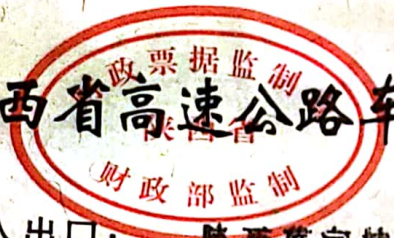 政票据监制
西省高速公路车
陕西省
财政部监制
出口：